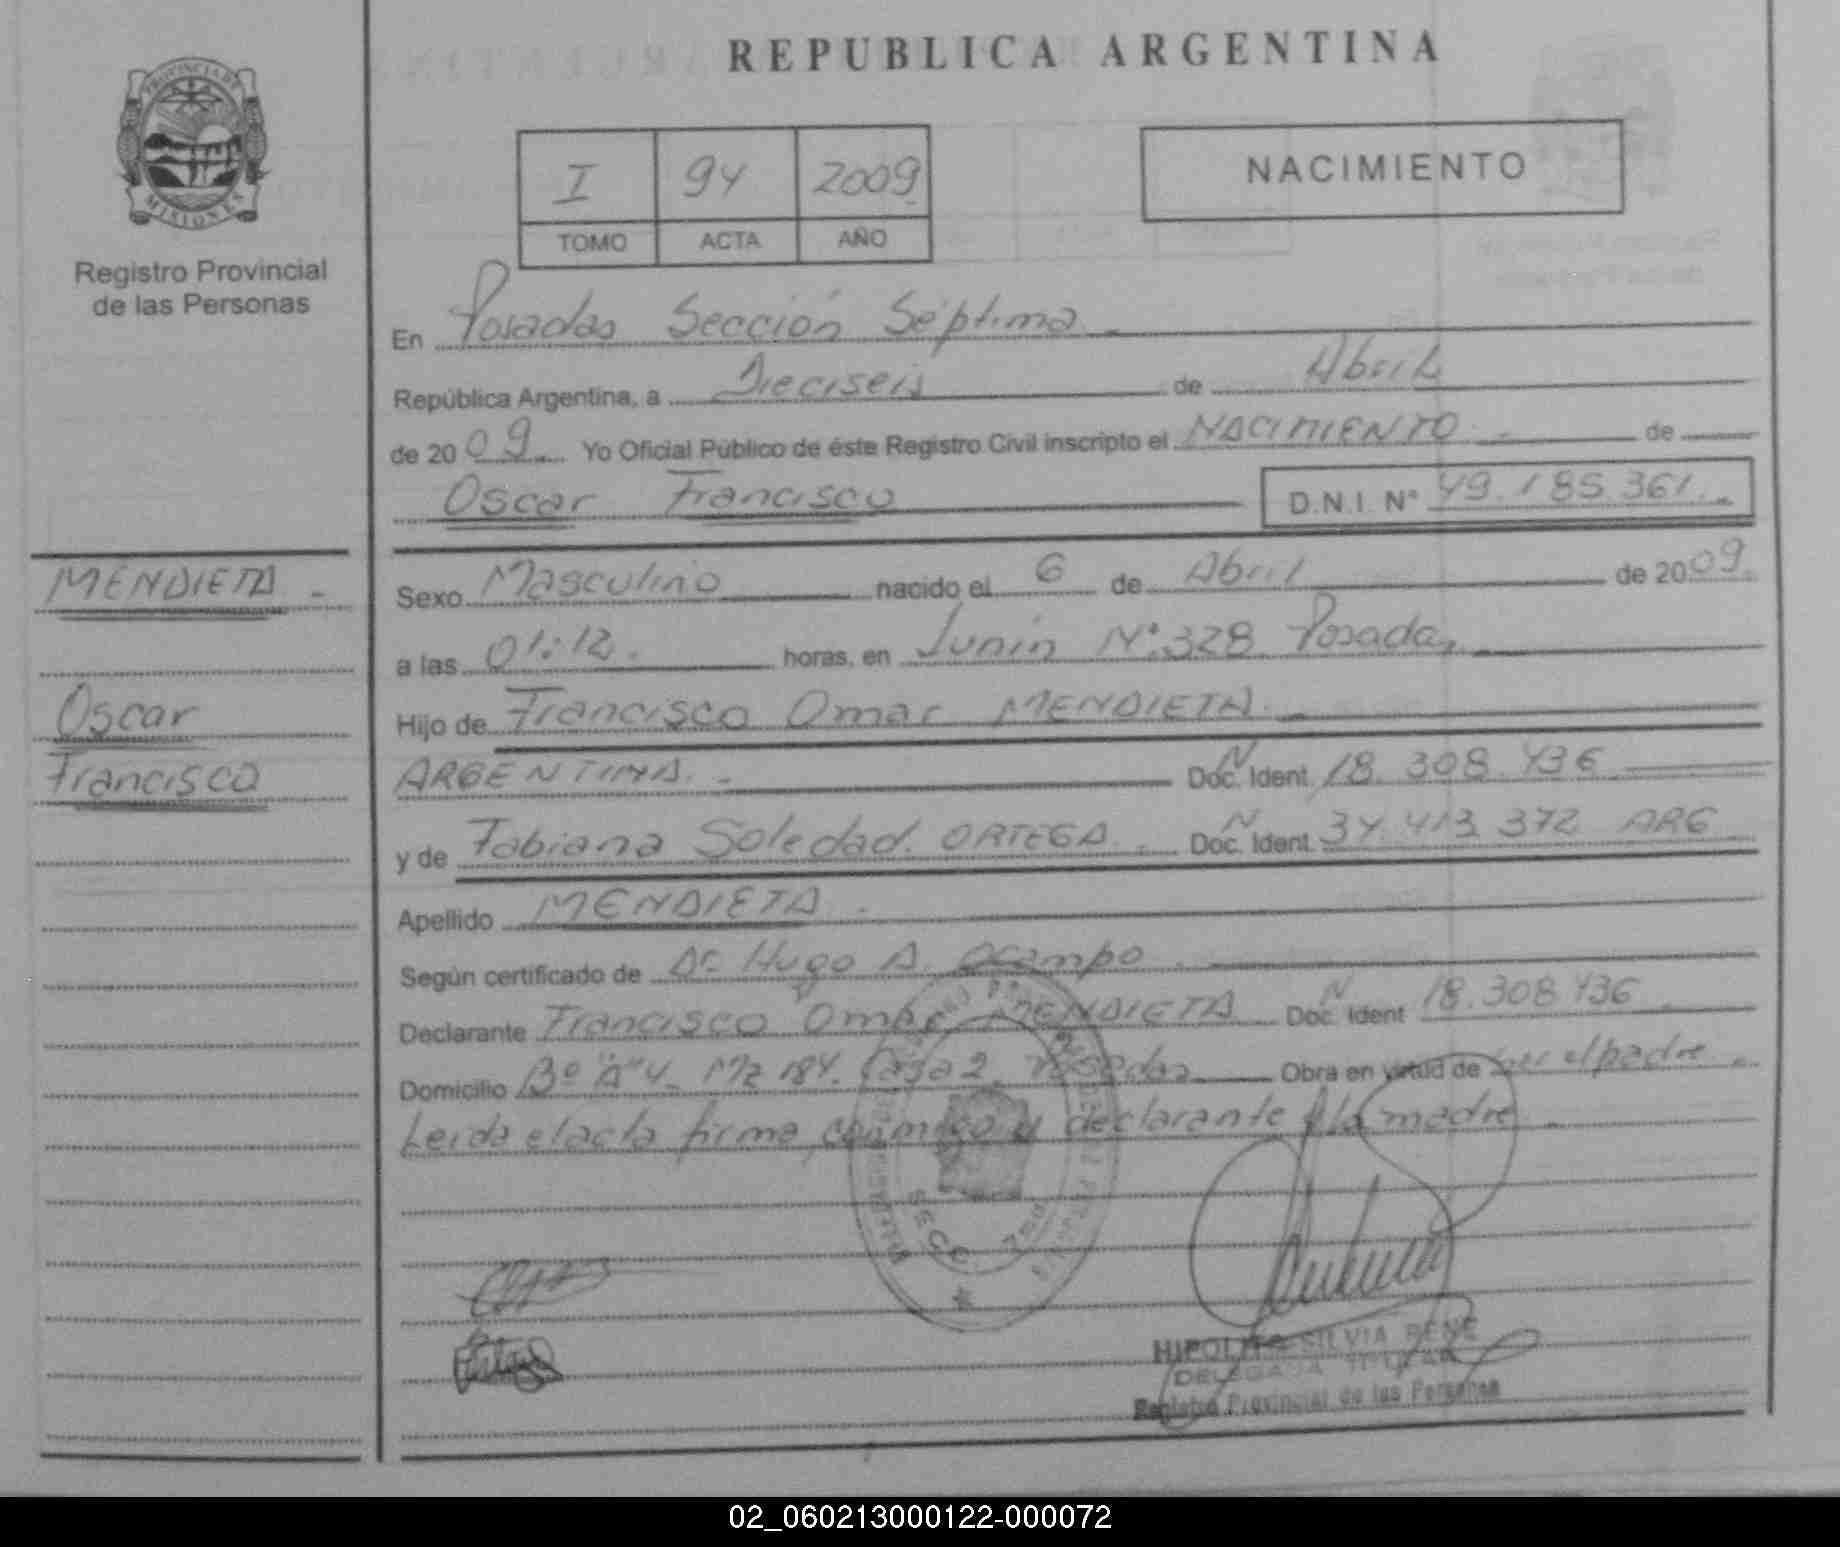 REPUBLICA ARGENTINA
PROVINCIA DE
MISIONES
Registro Provincial
de las Personas
I 94 2009
TOMO ACTA AÑO
NACIMIENTO
En Posadas Sección Séptima
República Argentina, a Dieciseis de Abril
de 2009 Yo Oficial Público de éste Registro Civil inscripto el NACIMIENTO de
Oscar Francisco D.N.I. N° 49.185.361
MENDIETA
Oscar
Francisco
Sexo Masculino nacido el 6 de Abril de 2009
a las 01:12 horas, en Junín N° 328 Posadas
Hijo de Francisco Omar MENDIETA
ARGENTINA N Doc. Ident. 18.308.436
y de Fabiana Soledad ORTEGA N Doc. Ident. 34.413.372 ARG
Apellido MENDIETA
Según certificado de Dr. Hugo A. Ocampo
Declarante Francisco Omar MENDIETA N Doc. Ident 18.308.436
Domicilio B° "A" 4 Mz 184 Casa 2 Posadas Obra en virtud de ser el padre
Leida el acta firma conmigo el declarante y la madre
SECC.
HIPOLITO SILVIA RENE
DELEGADA TITULAR
Registro Provincial de las Personas
02_060213000122-000072